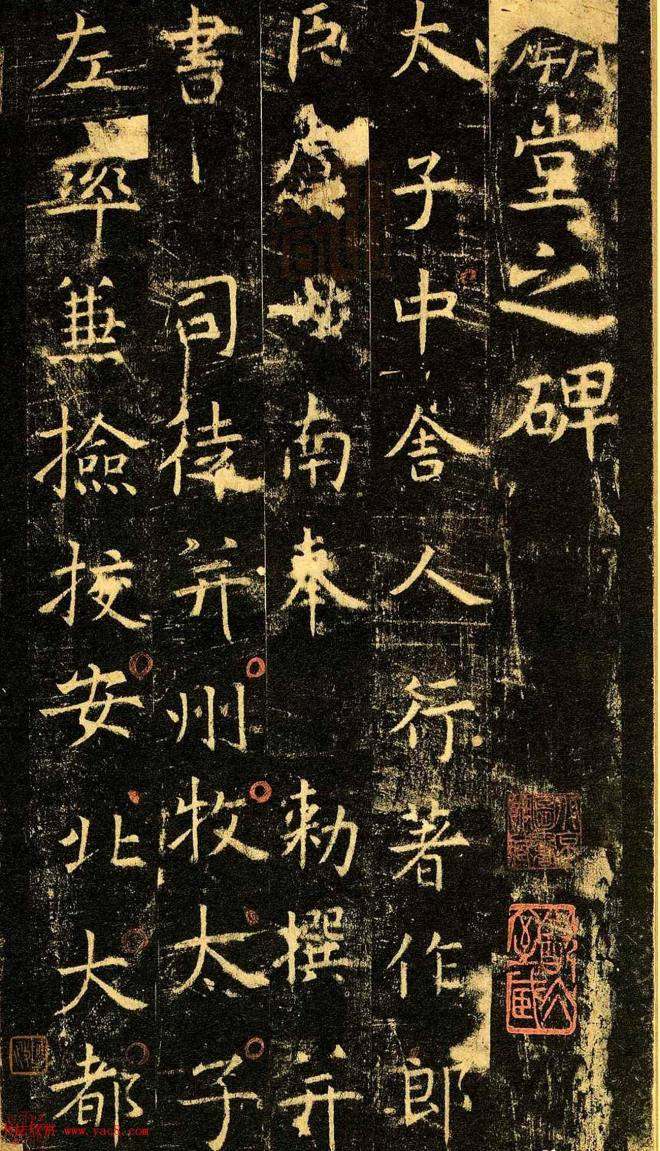 廟堂之碑
太子中舍人行著作郎
臣虞世南奉 勅撰并
書 司徒并州牧太子
左率兼撿挍安北大都
书法欣赏 www.yac8.com